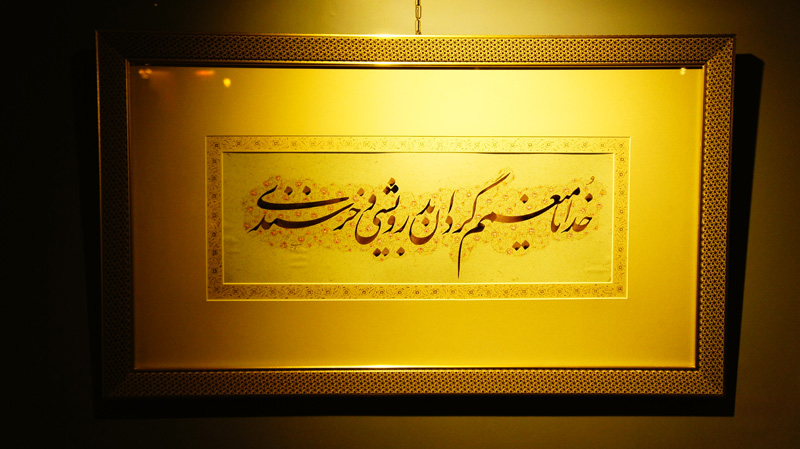 خدایا منعمم گردان به درویشی و خرسندی